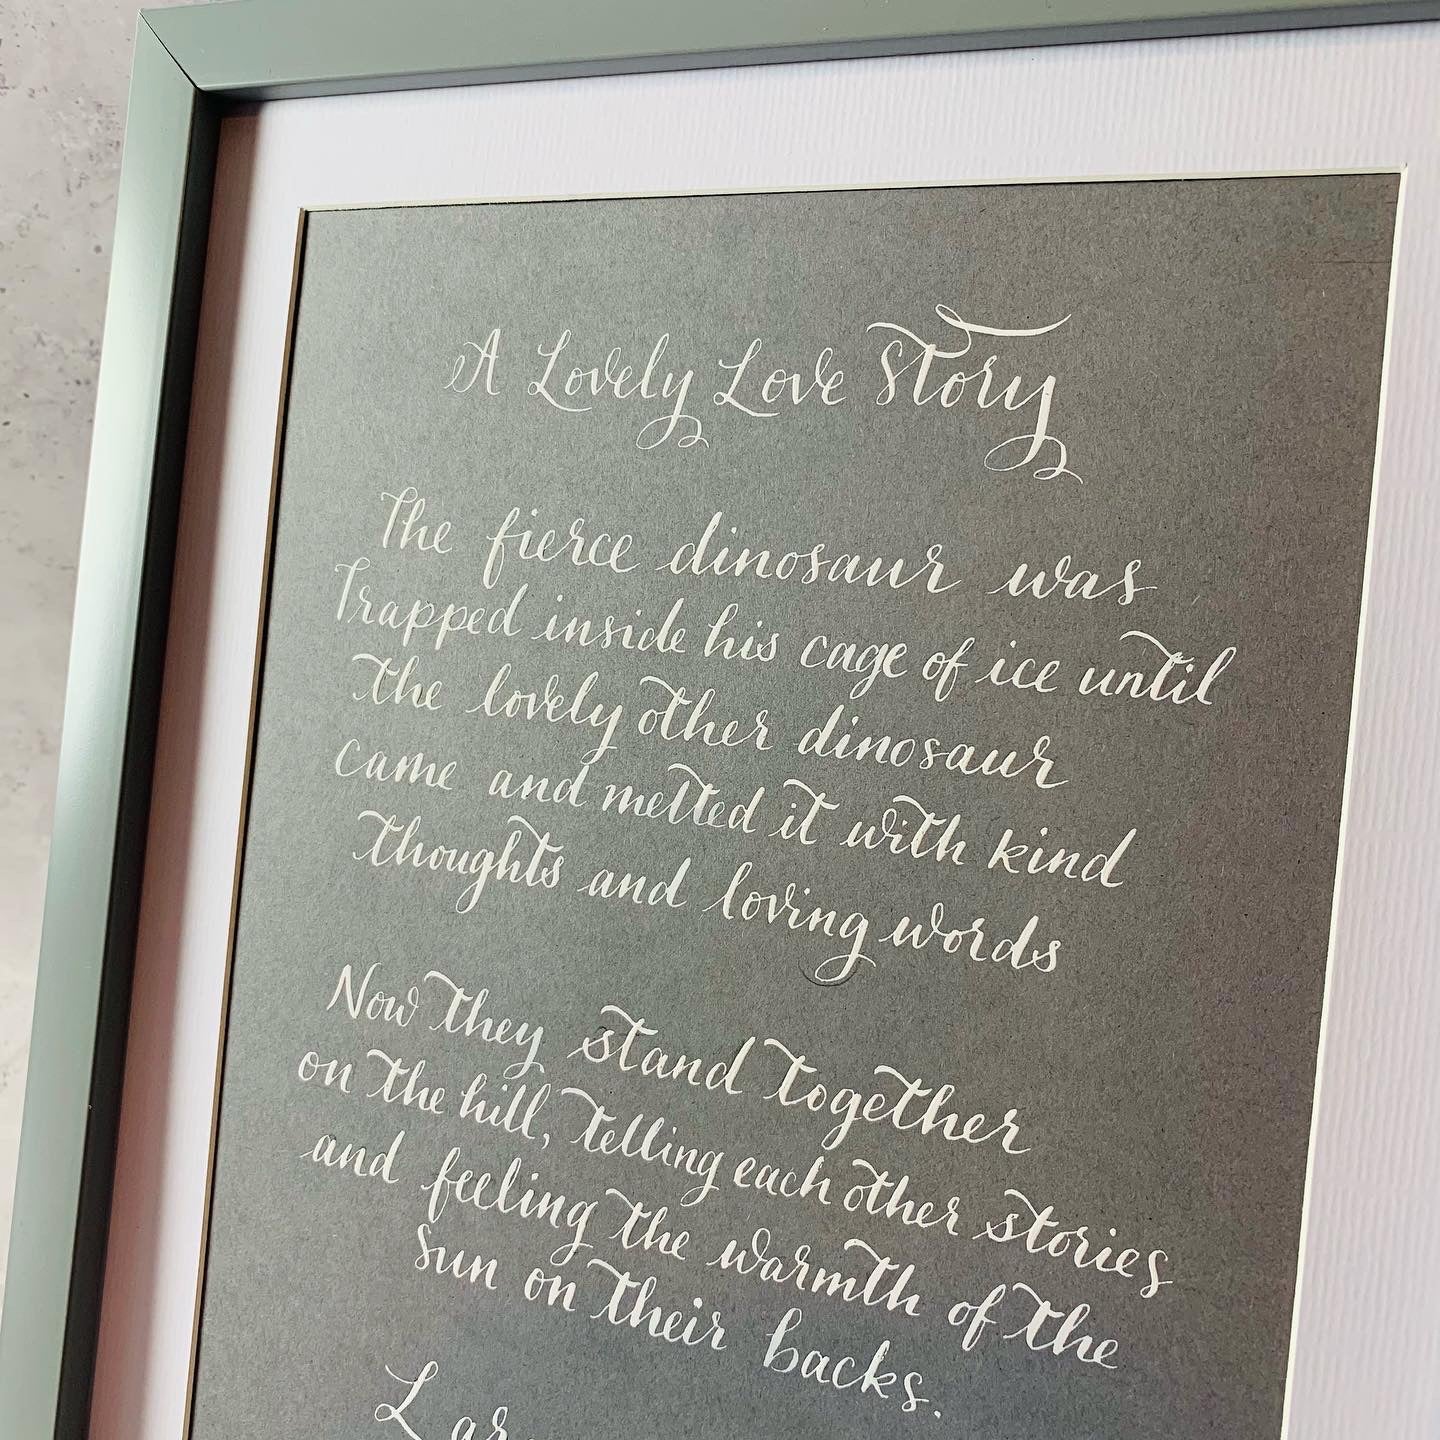 A Lovely Love Story
The fierce dinosaur was
Trapped inside his cage of ice until
the lovely other dinosaur
came and melted it with kind
thoughts and loving words
Now they stand together
on the hill, telling each other stories
and feeling the warmth of the
sun on their backs.